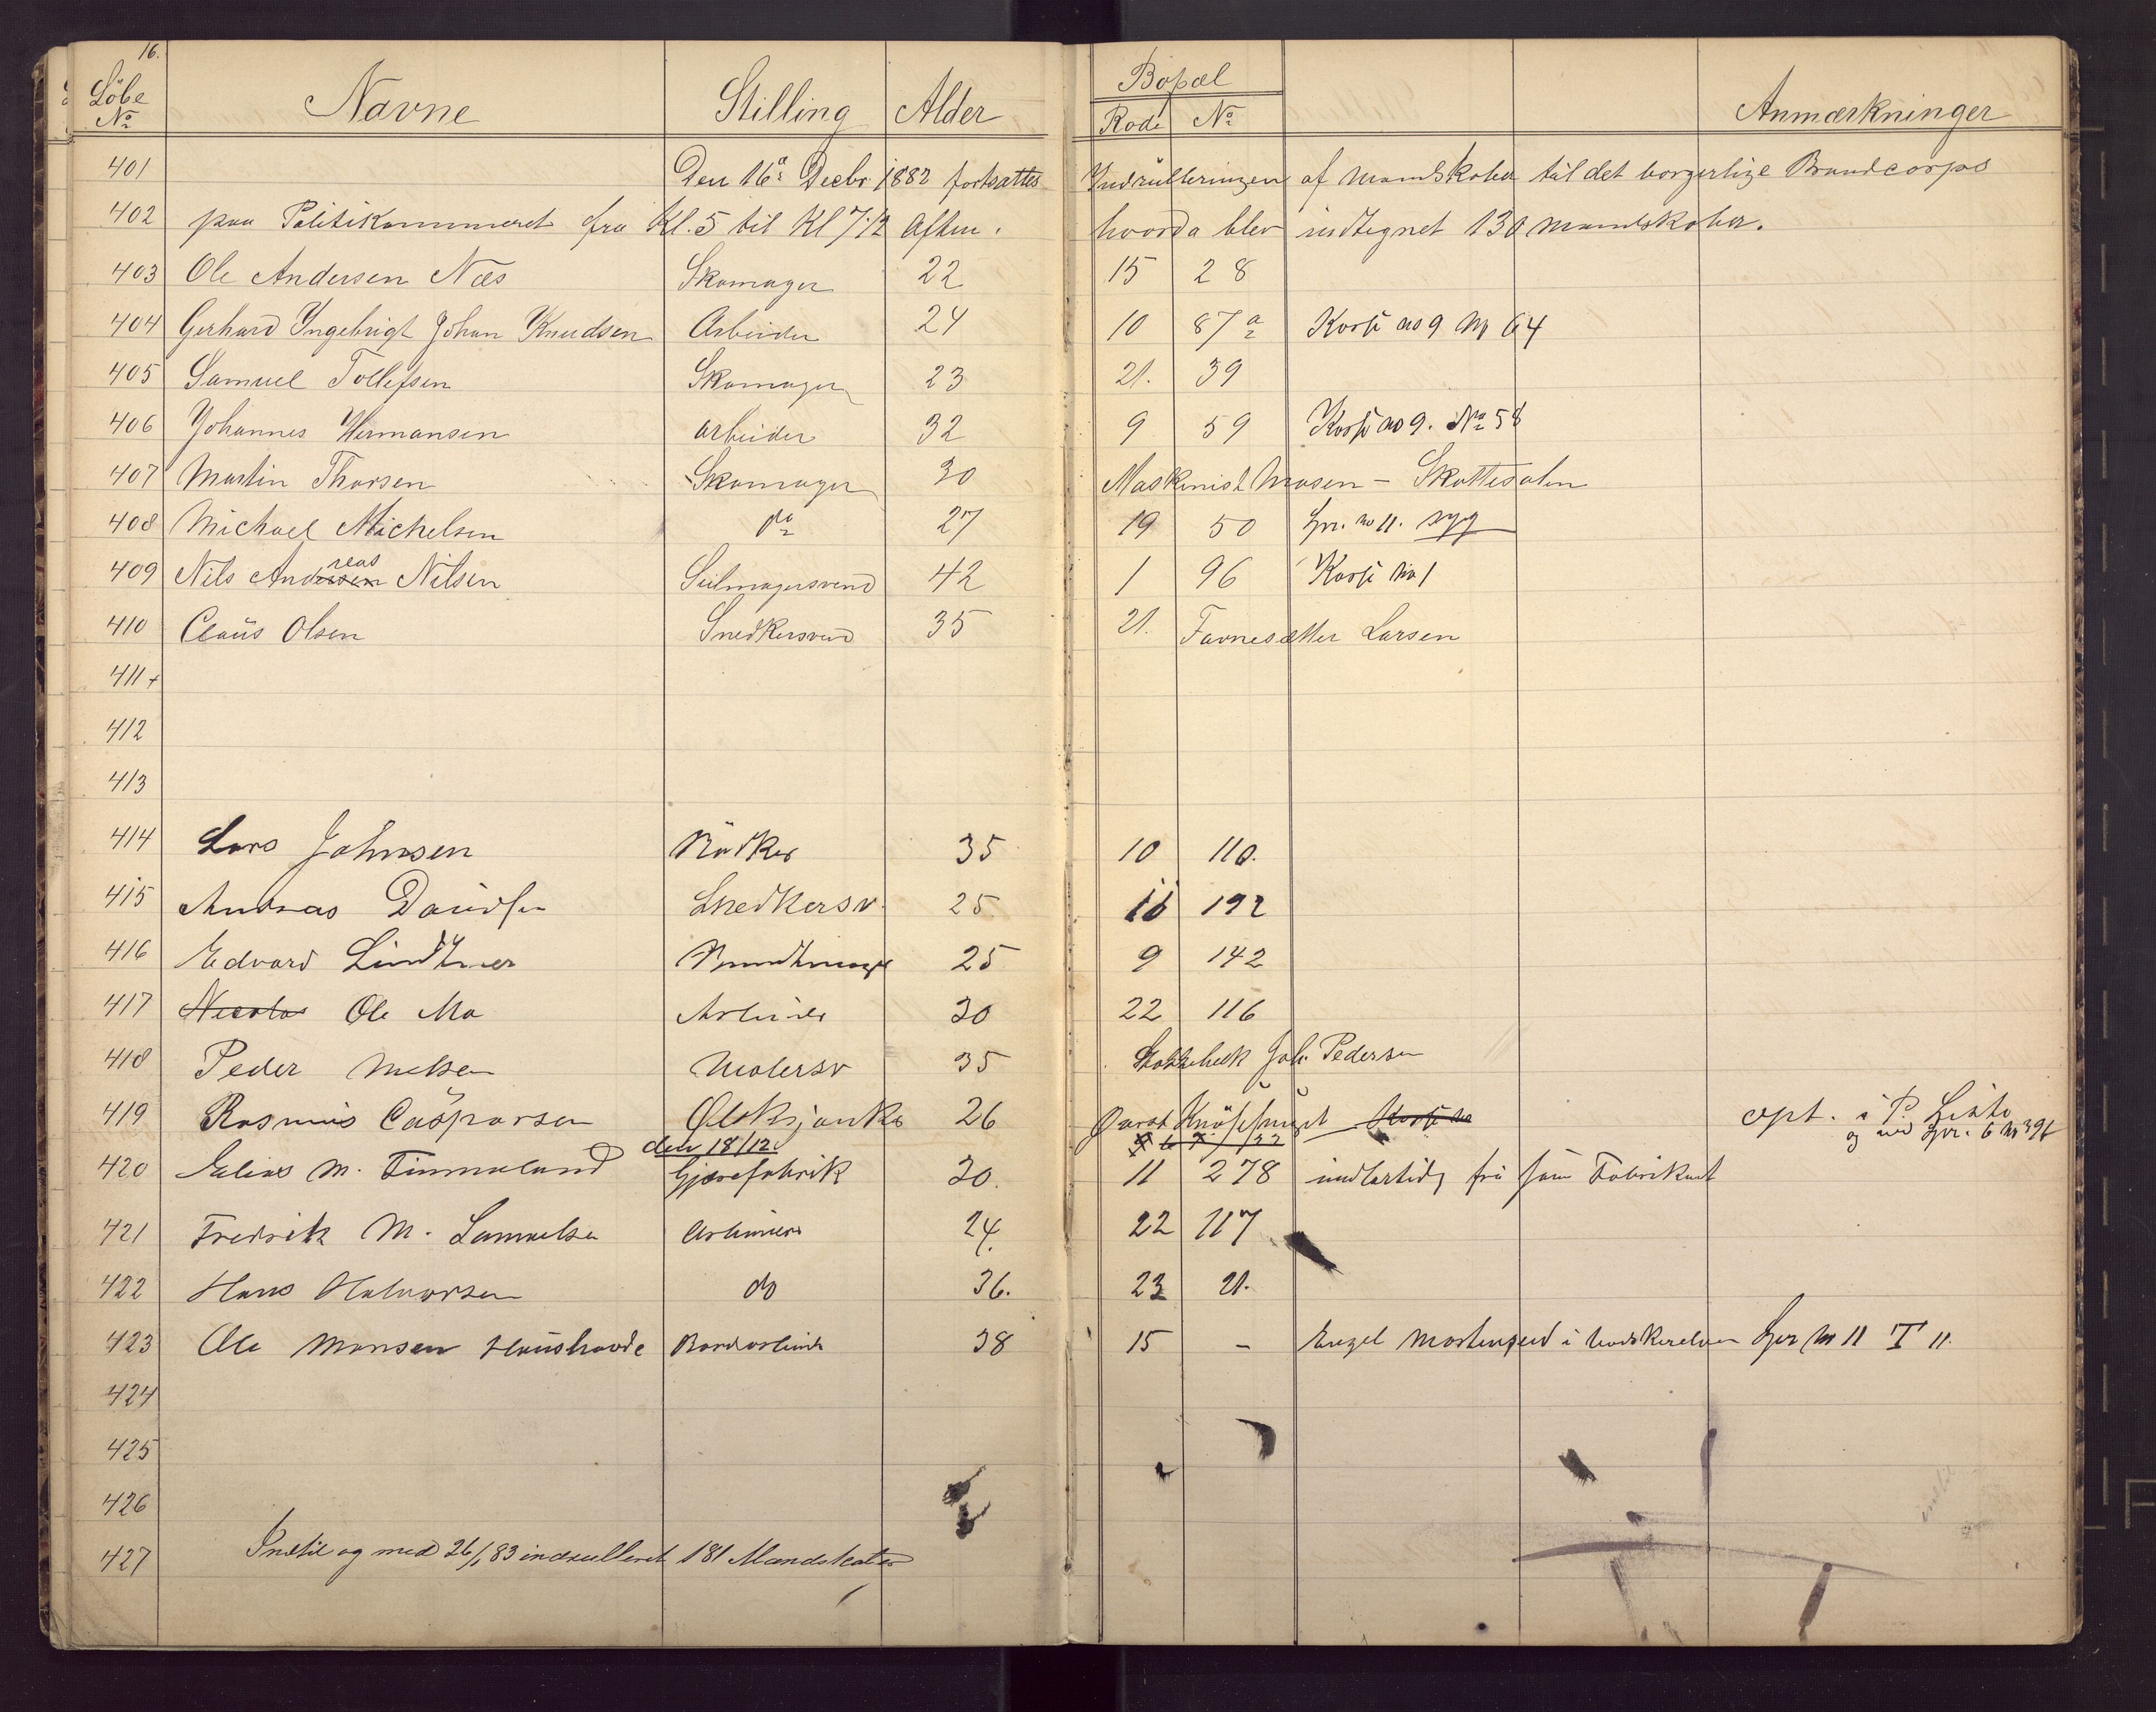 16.
Löbe No Navne Stilling Alder Bopæl Rode No Anmærkninger
401 Den 16de Decbr 1882 fortsattes Indrulleringen af Mandskaber til det borgerlige Brandcorps
402 paa Politikammeret fra Kl. 5 til Kl 7 1/2 Aften. hvorda blev indtegnet 130 Mandskaber.
403 Ole Andersen Næs Skomager 22 15 28
404 Gerhard Ingebrigt Johan Knudsen Arbeider 24 10 87a no 9 No 64
405 Samuel Tollefsen Skomager 23 21. 39
406 Johannes Hermansen arbeider 32 9 59 no 9. No 58
407 Martin Thorsen Skomager 30 Maskinist - Skottesalen
408 Michael Michelsen do 27 19 50 Spr. no 11. syg
409 Nils Andreas Nilsen Seilmagersvend 42 1 96 No 1
410 Claüs Olsen Snedkersvend 35 21. Favnesætter Larsen
411 +
412
413
414 Lars Johnsen Bödker 35 10 110.
415 Andreas Davidsen Snedkersv. 25 11 192
416 Edvard Lindtner 25 9 142
417 Nicolai Ole Mo Arbeider 30 22 116
418 Peder Malersv 35 Joh. Pedersen
419 Rasmus Casparsen 26 opt. i P. Liste
og ved Spr. 6 No 396
den 18/12.
420 Elias M. Timmeland Gjærfabrik 30. 11 278 indlertidig fri som Fabrikant
421 Fredrik M. Samuelsen Arbeider 24. 22 117
422 Hans Halvorsen do 36. 23 21.
423 Ole Monsen Haüshovde 38 15 - Engel i Spr No 11 T 11.
424
425
426
427 Indtil og med 26/1 83 indrulleret 181 Mandskaber